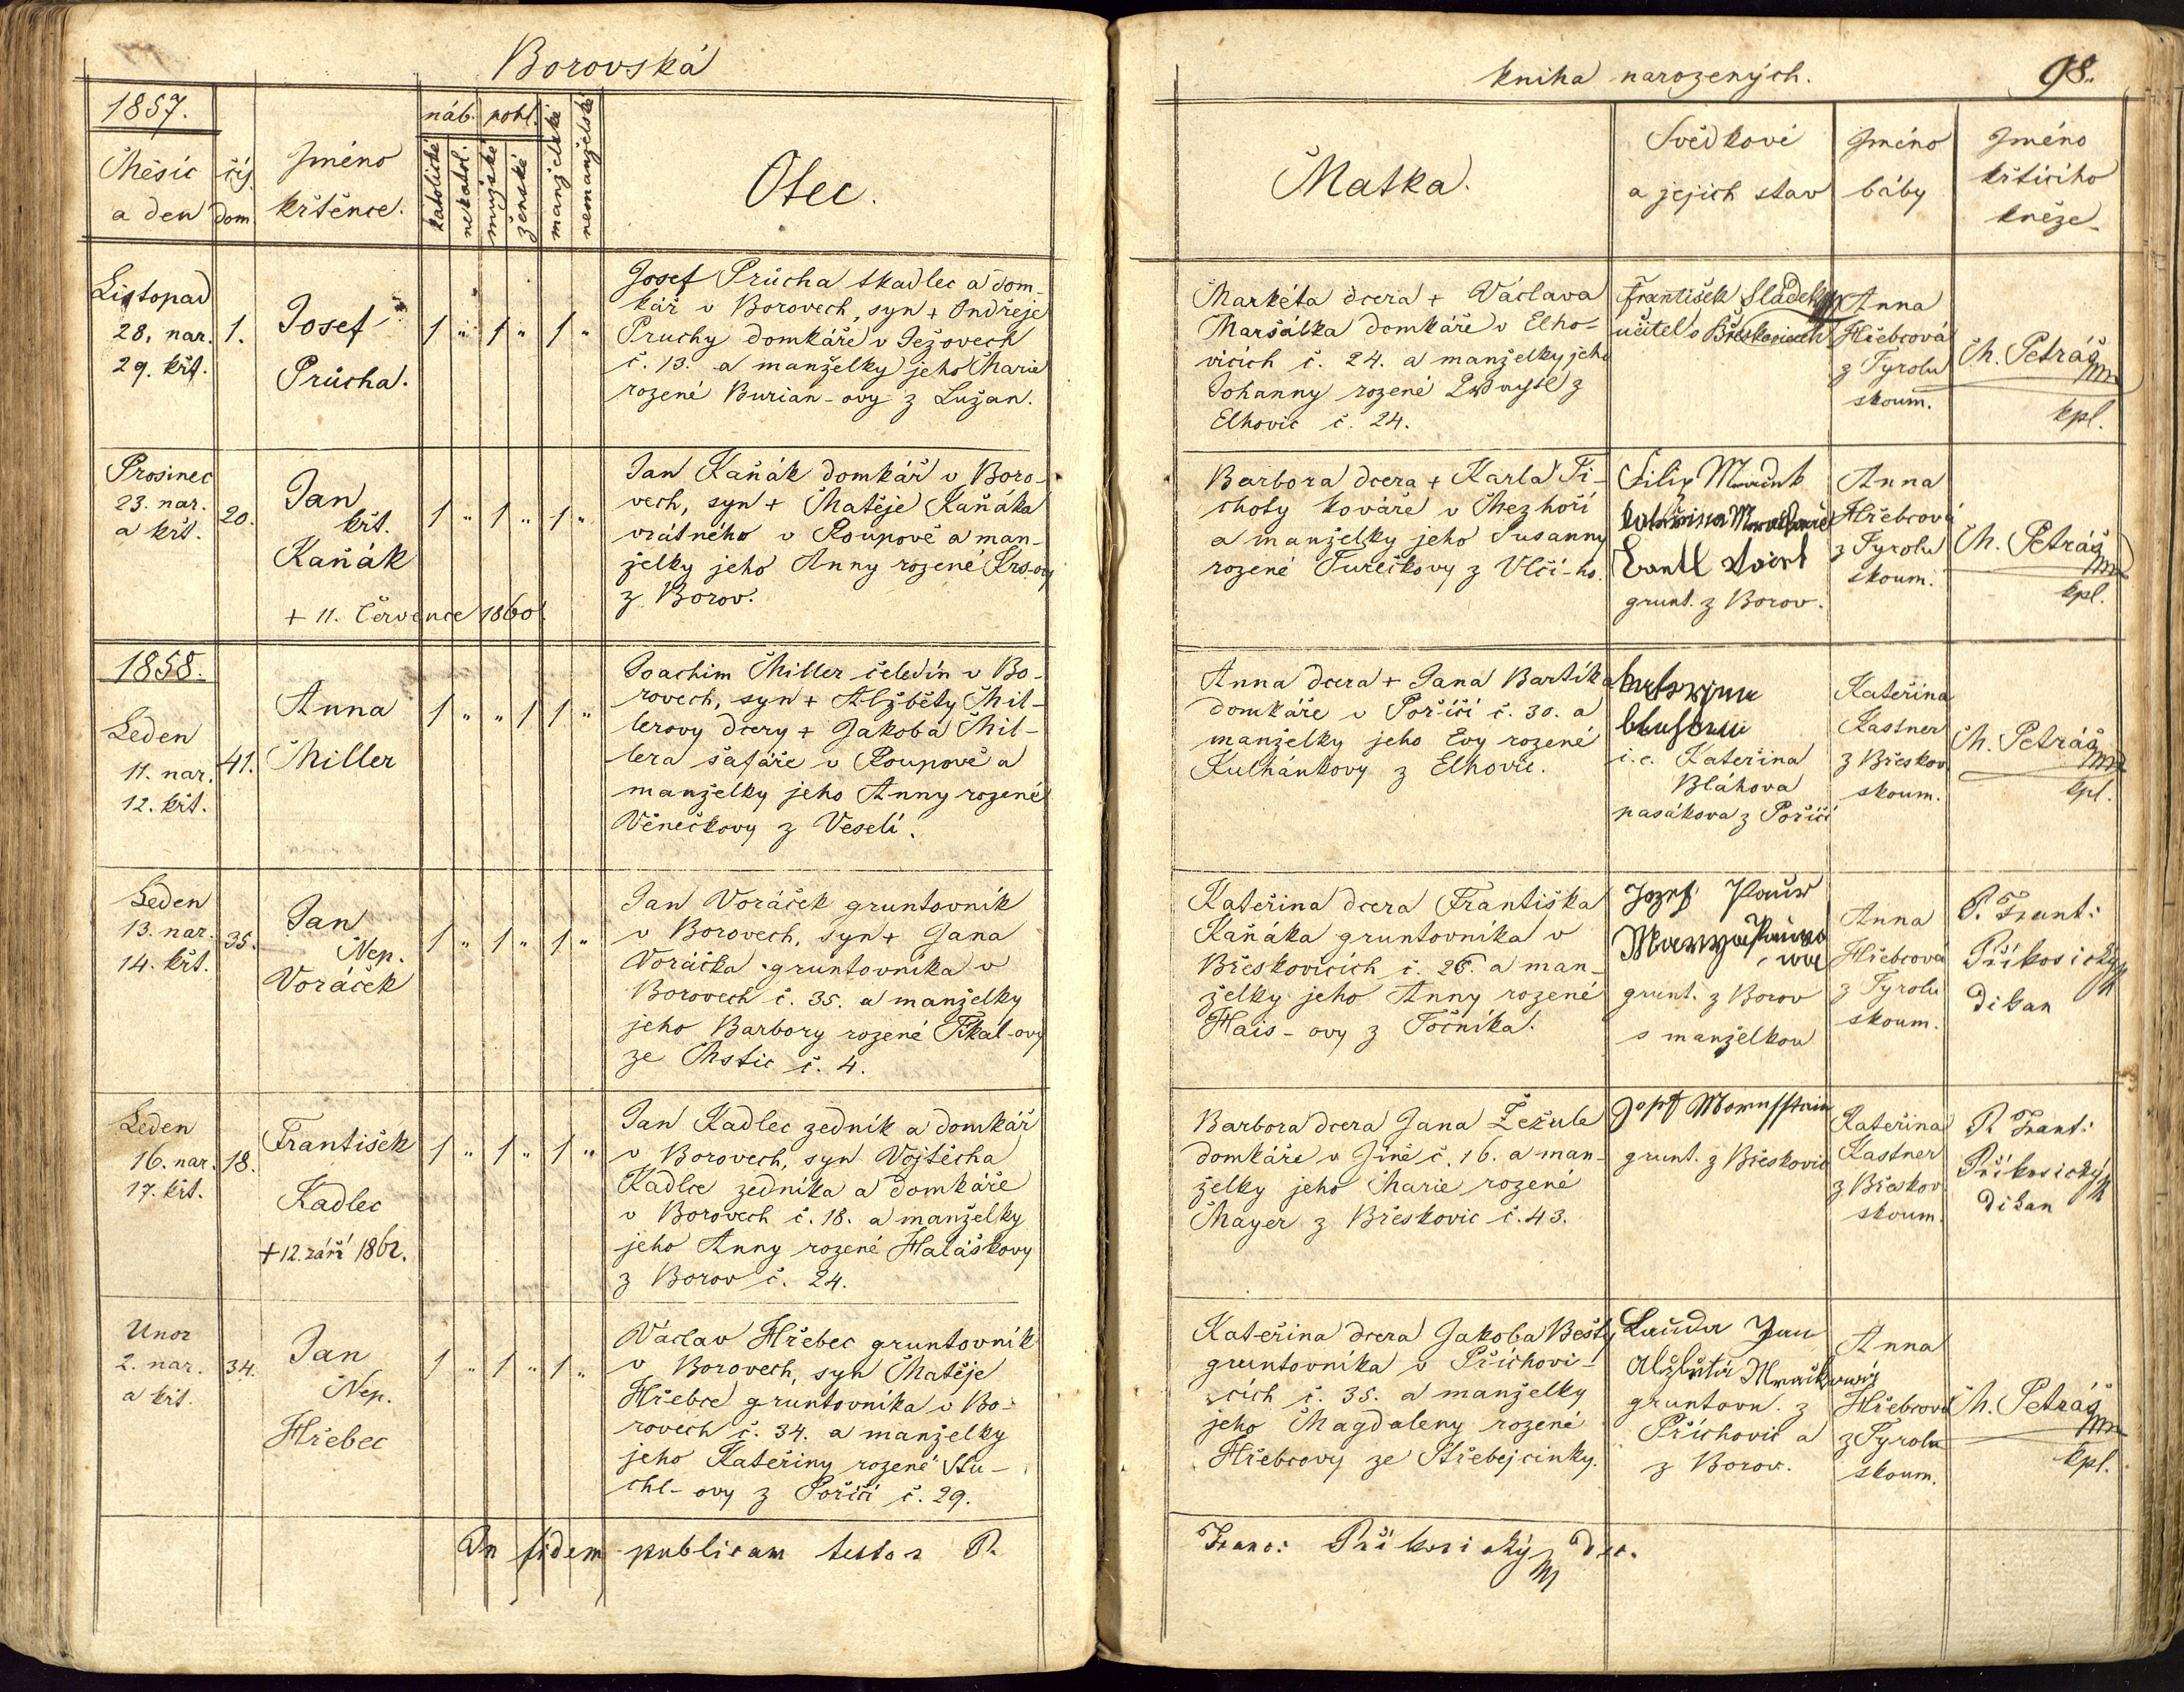 Borovská
1857.
Měsíc
a den
čís.
dom.
Jméno
křtěnce.
náb.
pohl.
katolické
nekatol.
mužské
ženské
manželské
nemanželské
Otec.
Listopad
28. nar.
29. křt.
1.
Josef
Průcha.
1 " 1 " 1 "
Josef Průcha tkadlec a dom-
kář v Borovech, syn + Ondřeje
Pruchy domkáře v Ježovech
č. 13. a manželky jeho Marie
rozené Burian-ovy z Lužan.
Prosinec
23. nar.
a křt.
20.
Jan
křt.
Kaňák
+ 11. Července 1860.
1 " 1 " 1 "
Jan Kaňák domkář v Boro-
vech, syn + Matěje Kaňáka
vrátného v Roupově a man-
želky jeho Anny rozené Krs-ovy
z Borov.
1858.
Leden
11. nar.
12. křt.
41.
Anna
Miller
1 " " 1 1 "
Joachim Miller čeledín v Bo-
rovech, syn + Alžběty Mil-
lerovy dcery + Jakoba Mil-
lera šafáře v Roupově a
manželky jeho Anny rozené
Věnečkovy z Veselí.
Leden
13. nar.
14. křt.
35.
Jan
Nep.
Voráček
1 " 1 " 1 "
Jan Voráček gruntovník
v Borovech, syn + Jana
Voráčka gruntovníka v
Borovech č. 35. a manželky
jeho Barbory rozené Fikal-ovy
ze Mstic č. 4.
Leden
16. nar.
17. křt.
18.
František
Kadlec
+ 12. září 1862.
1 " 1 " 1 "
Jan Kadlec zedník a domkář
v Borovech, syn Vojtěcha
Kadlce zedníka a domkáře
v Borovech č. 18. a manželky
jeho Anny rozené Haláškovy
z Borov č. 24.
Unor
2. nar.
a křt.
34.
Jan
Nep.
Hřebec
1 " 1 " 1 "
Václav Hřebec gruntovník
v Borovech, syn Matěje
Hřebce gruntovníka v Bo-
rovech č. 34. a manželky
jeho Kateřiny rozené Stu-
chl-ovy z Poříčí č. 29.
In fidem publicam testor P.
kniha narozených.
98.
Matka.
Svědkové
a jejich stav
Jméno
báby
Jméno
křtícího
kněze
Markéta dcera + Václava
Maršálka domkáře v Elho-
vicích č. 24. a manželky jeho
Johanny rozené
z
Elhovic č. 24.
František Sládek
učitel v Břeskovicech
Anna
Hřebcová
z Tyrolu
skoum.
M. Petráš
kpl.
Barbora dcera + Karla Ti-
choty kováře v Mezhoří
a manželky jeho Susanny
rozené Turečkovy z Vlčí-ho.
Filip
grunt. z Borov.
Anna
Hřebcová
z Tyrolu
skoum.
M. Petráš
kpl.
Anna dcera + Jana Bartíka
domkáře v Poříčí č. 30. a
manželky jeho Evy rozené
Kulhánkovy z Elhovic.
i. e. Kateřina
Bláhova
pasákova z Poříčí
Kateřina
Kastner
z Břeskov.
skoum.
M. Petráš
kpl.
Kateřina dcera Františka
Kaňáka gruntovníka v
Břeskovicích č. 26. a man-
želky jeho Anny rozené
Hais-ovy z Točníka.
Jozef
grunt. z Borov
s manželkou
Anna
Hřebcová
z Tyrolu
skoum.
P. Frant:
Příkosický
děkan
Barbora dcera Jana Žežule
domkáře v Jíně č. 16. a man-
želky jeho Marie rozené
Mayer z Břeskovic č. 43.
grunt. z Břeskovic
Kateřina
Kastner
z Břeskov
skoum.
P. Frant:
Příkosický
děkan
Kateřina dcera Jakoba Bešty
gruntovníka v Příchovi-
cích č. 35. a manželky
jeho Magdaleny rozené
Hřebcovy ze Střebejcinky.
Lauda Jan
gruntovn. z
Příchovic a
z Borov.
Anna
Hřebcová
z Tyrolu
skoum.
M. Petráš
kpl.
Franc: Příkosický